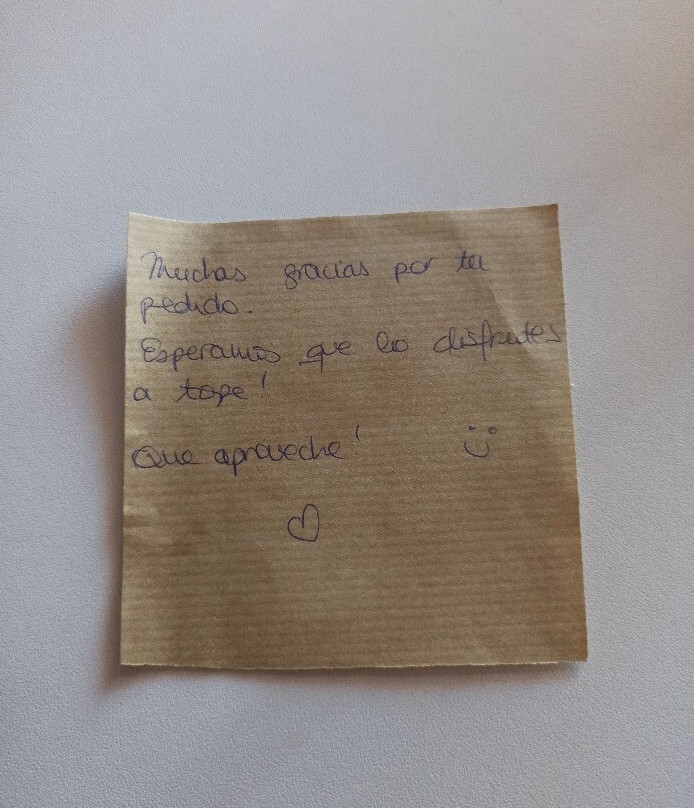 Muchas gracias por tu
pedido.
Esperamos que lo disfrutes
a tope!
Que aproveche!